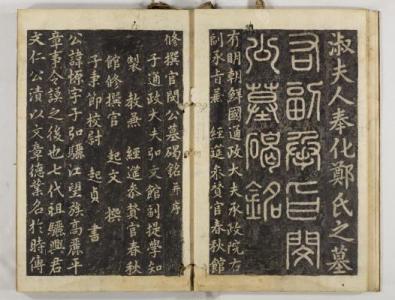 淑夫人奉化鄭氏之墓
右副承旨閔
公墓碣銘
有明朝鮮國通政大夫承政院右
副承旨兼 經筵參贊官春秋館
修撰官閔公墓碣銘 并序
子通政大夫弘文館副提學知
製 敎兼 經筵參贊官春秋
館修撰官 起文 撰
子秉節校尉 起貞 書
公諱 字子 驪江望 高麗平
章事令謨之後也七代祖驪興君
文仁公漬以文章德業名於時傳